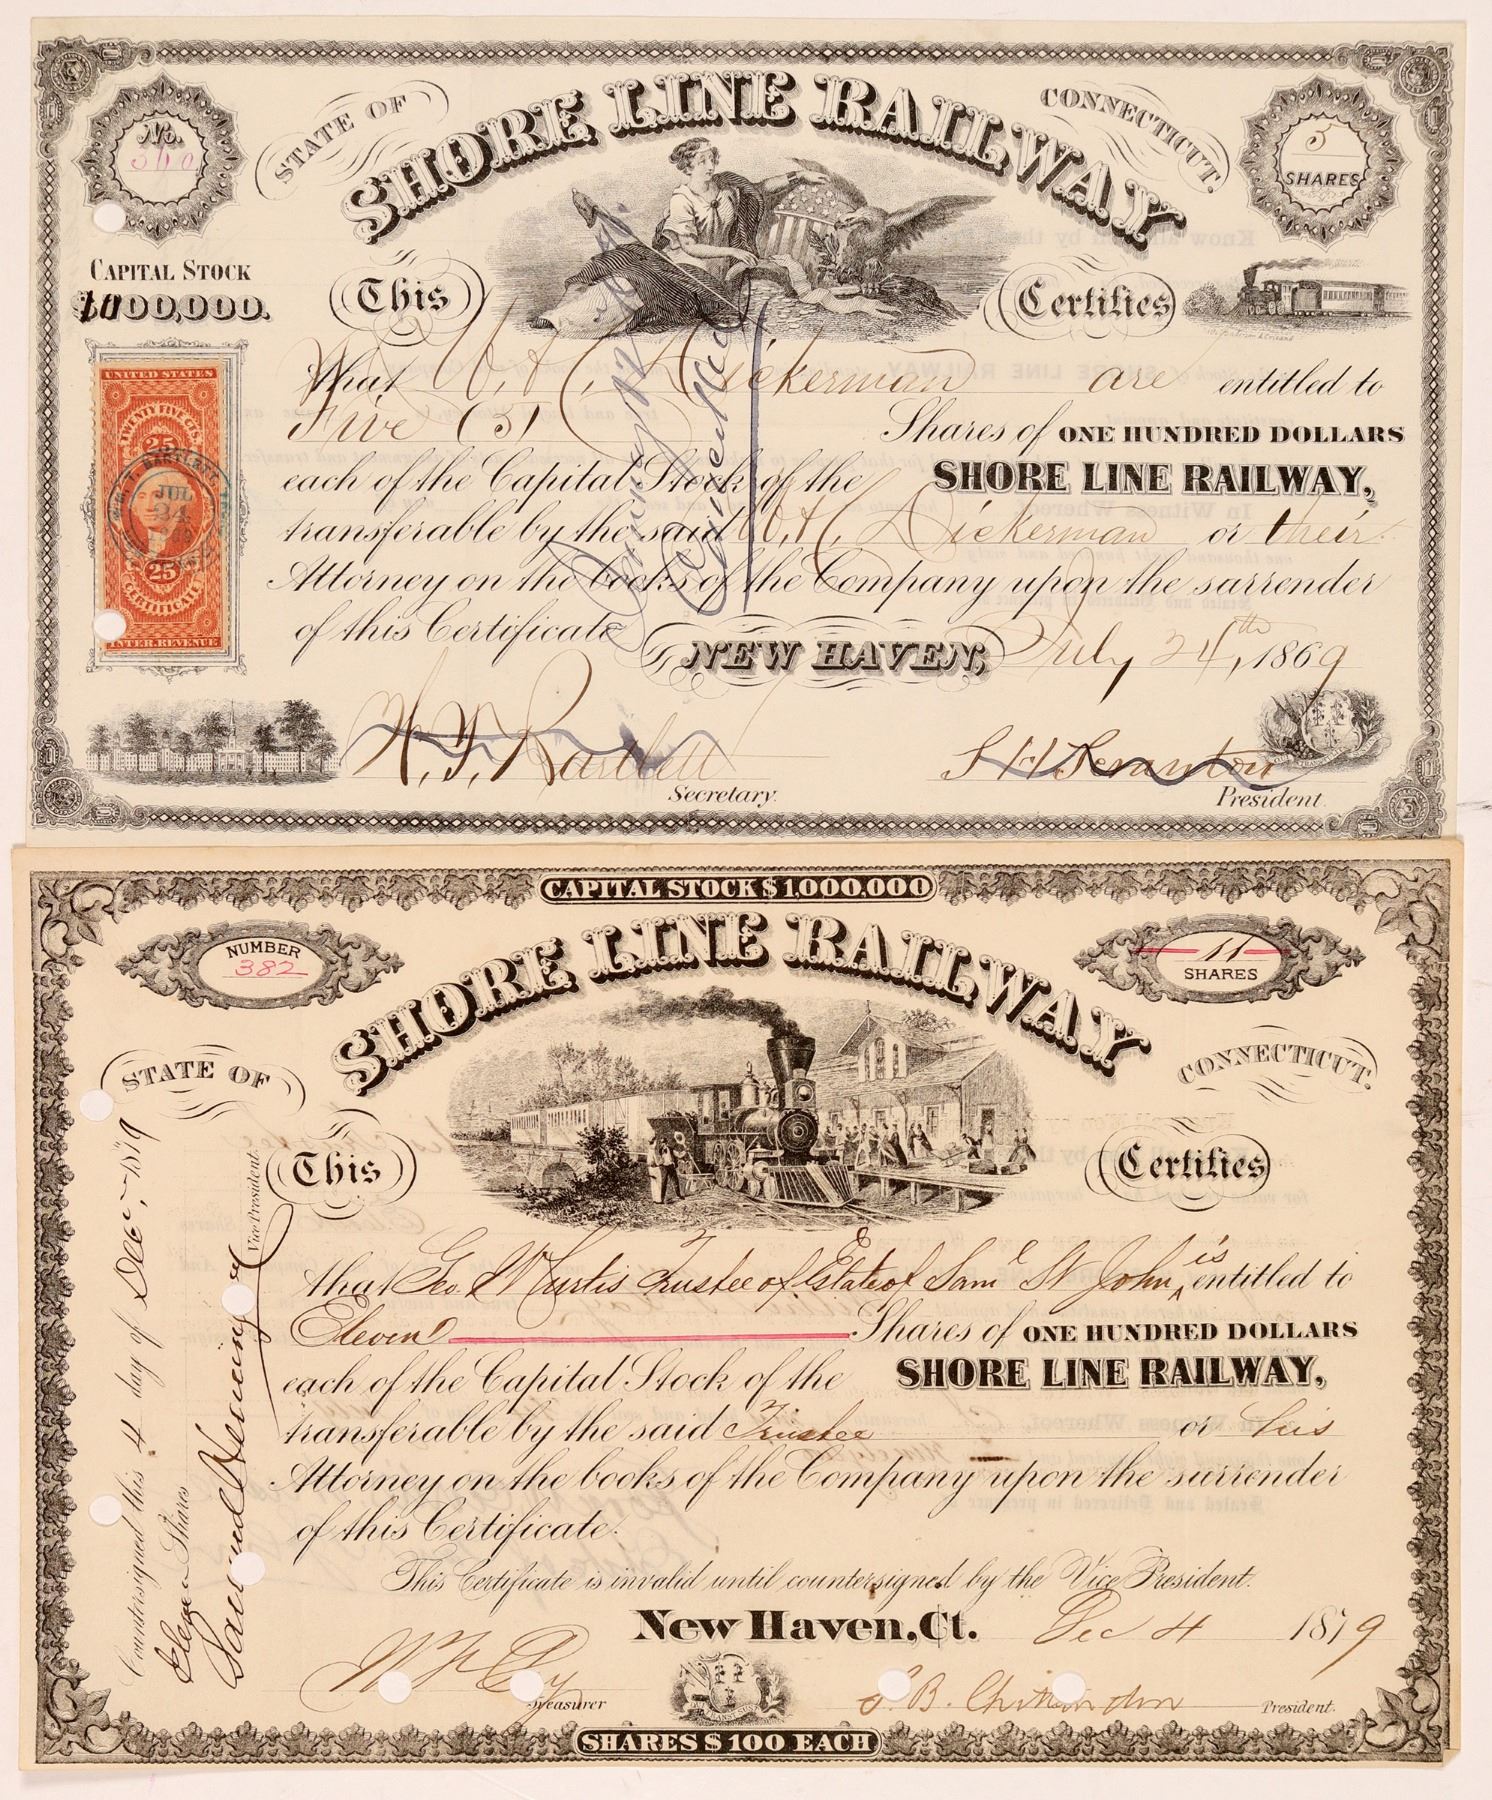 No.
STATE OF
SHORE LINE RAILWAY
CONNECTICUT.
5
SHARES
CAPITAL STOCK
$1,000,000.
This
Certifies
That W. & C. Dickerman are entitled to
Five (5) Shares of ONE HUNDRED DOLLARS
each of the Capital Stock of the SHORE LINE RAILWAY,
transferable by the said W. & C. Dickerman or their
Attorney on the books of the Company upon the surrender
of this Certificate
NEW HAVEN, July 24th, 1869
UNITED STATES
TWENTY FIVE CTS.
25
JUL
24
25
CERTIFICATE
INTER. REVENUE
W. T. Bartlett
Secretary.
S H Scranton
President.
CAPITAL STOCK $1,000,000
NUMBER
382
SHORE LINE RAILWAY
11
SHARES
STATE OF
CONNECTICUT.
This
Certifies
that Geo W Curtis Trustee of Estate of Saml St John is entitled to
Eleven Shares of ONE HUNDRED DOLLARS
each of the Capital Stock of the SHORE LINE RAILWAY,
transferable by the said Trustee or his
Attorney on the books of the Company upon the surrender
of this Certificate.
This Certificate is invalid until countersigned by the Vice President.
New Haven, Ct. Dec 4 1879
Countersigned this 4 day of Dec 1879
Eleven Shares
Samuel Hemingway
Vice President
Treasurer
S B. Chittenden
President.
SHARES $100 EACH